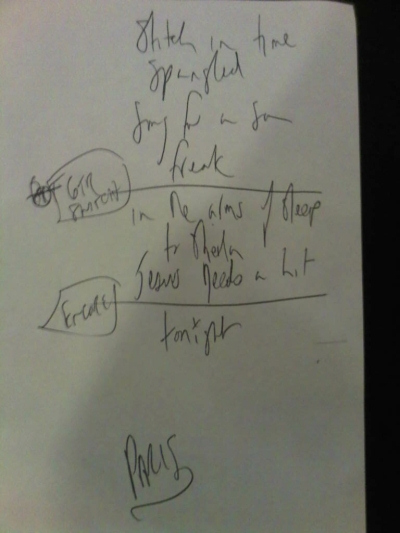 Stitch in time
Spangled
Song for a Son
Freak
GTR
SWITCH
in the arms of sleep
to Sheila
Jesus needs a hit
ENCORE
tonight
PARIS